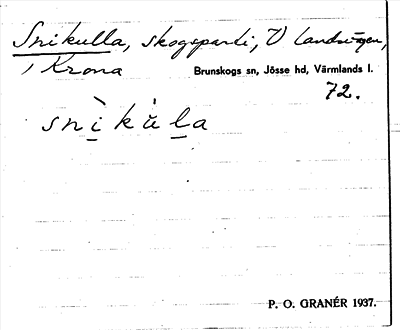 Snikulla, skogsparti, V landsvägen,
i Krona Brunskogs sn, Jösse hd, Värmlands l.
72.
snìkùla
P. O. GRANÉR 1937.